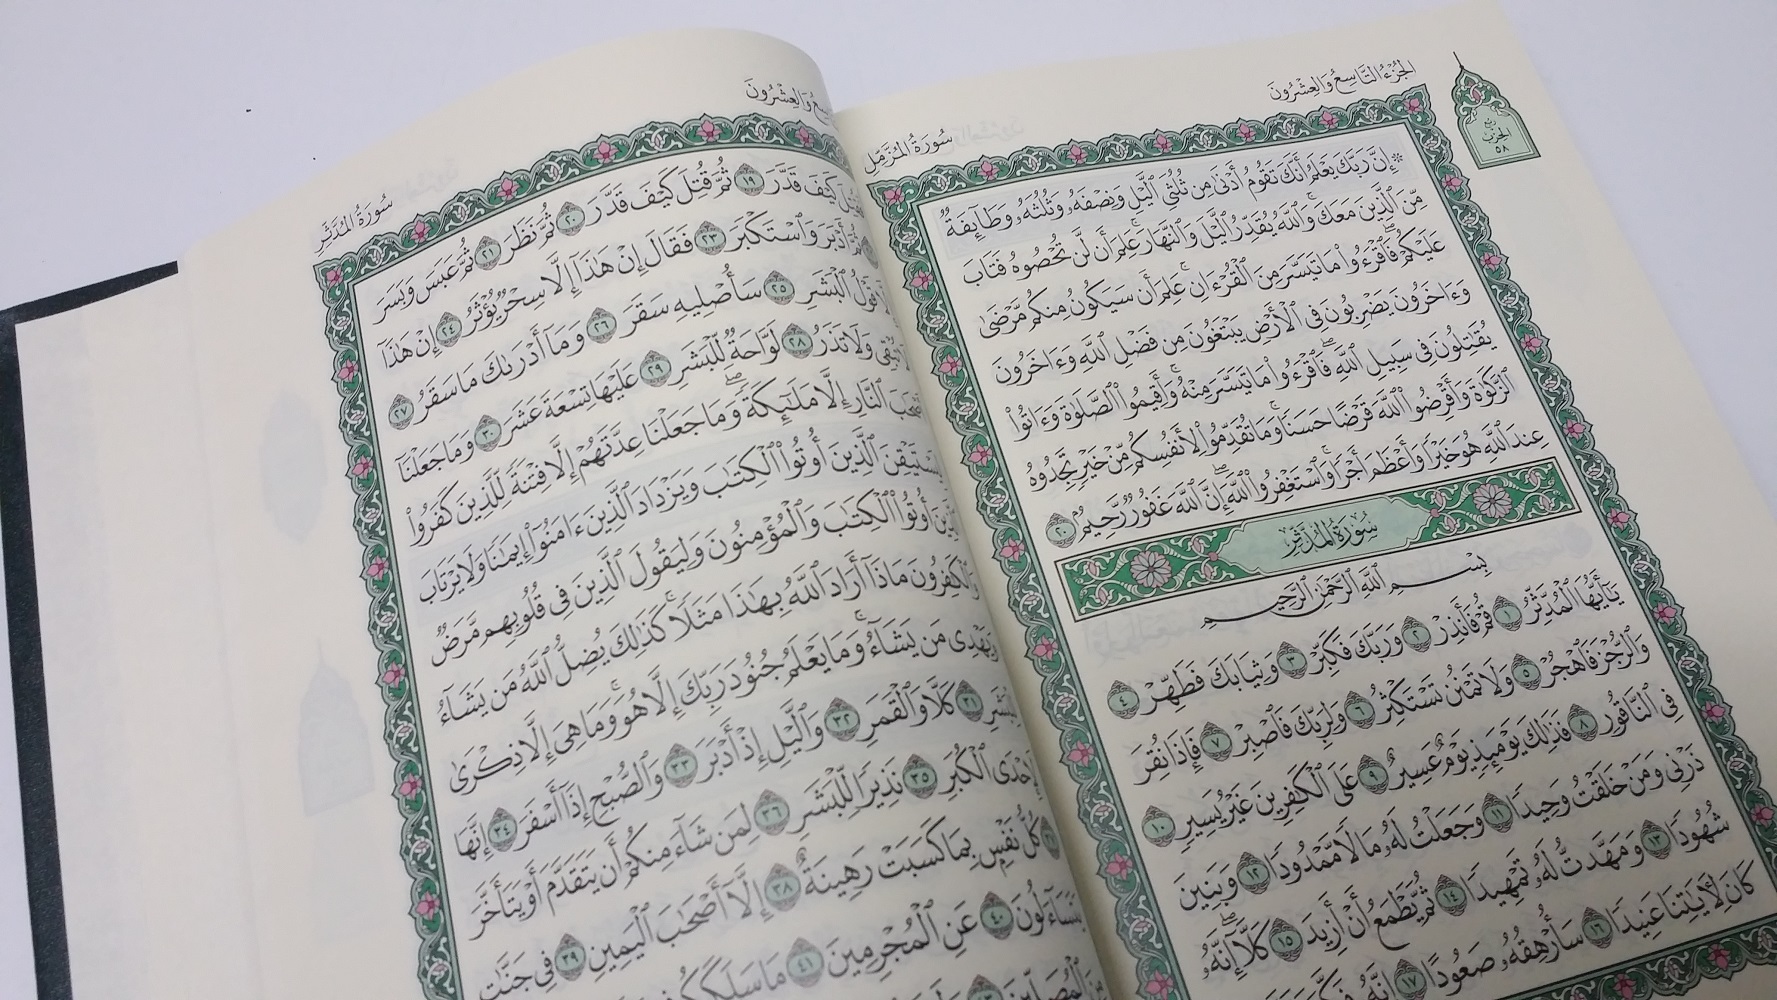 الجُزْءُ التَّاسِعُ وَالعِشْرُونَ
سُورَةُ المُزَّمِّل
رُبْع
الحِزْبِ
٥٨
۞ إِنَّ رَبَّكَ يَعْلَمُ أَنَّكَ تَقُومُ أَدْنَىٰ مِن ثُلُثَىِ ٱلَّيْلِ وَنِصْفَهُۥ وَثُلُثَهُۥ وَطَآئِفَةٌ
مِّنَ ٱلَّذِينَ مَعَكَۚ وَٱللَّهُ يُقَدِّرُ ٱلَّيْلَ وَٱلنَّهَارَۚ عَلِمَ أَن لَّن تُحْصُوهُ فَتَابَ
عَلَيْكُمْۖ فَٱقْرَءُوا۟ مَا تَيَسَّرَ مِنَ ٱلْقُرْءَانِۚ عَلِمَ أَن سَيَكُونُ مِنكُم مَّرْضَىٰ
وَءَاخَرُونَ يَضْرِبُونَ فِى ٱلْأَرْضِ يَبْتَغُونَ مِن فَضْلِ ٱللَّهِ وَءَاخَرُونَ
يُقَٰتِلُونَ فِى سَبِيلِ ٱللَّهِۖ فَٱقْرَءُوا۟ مَا تَيَسَّرَ مِنْهُۚ وَأَقِيمُوا۟ ٱلصَّلَوٰةَ وَءَاتُوا۟
ٱلزَّكَوٰةَ وَأَقْرِضُوا۟ ٱللَّهَ قَرْضًا حَسَنًاۚ وَمَا تُقَدِّمُوا۟ لِأَنفُسِكُم مِّنْ خَيْرٍ تَجِدُوهُ
عِندَ ٱللَّهِ هُوَ خَيْرًا وَأَعْظَمَ أَجْرًاۚ وَٱسْتَغْفِرُوا۟ ٱللَّهَۖ إِنَّ ٱللَّهَ غَفُورٌ رَّحِيمٌۢ ٢٠
سُورَةُ المُدَّثِّرِ
بِسْمِ ٱللَّهِ ٱلرَّحْمَٰنِ ٱلرَّحِيمِ
يَٰٓأَيُّهَا ٱلْمُدَّثِّرُ ١ قُمْ فَأَنذِرْ ٢ وَرَبَّكَ فَكَبِّرْ ٣ وَثِيَابَكَ فَطَهِّرْ ٤
وَٱلرُّجْزَ فَٱهْجُرْ ٥ وَلَا تَمْنُن تَسْتَكْثِرُ ٦ وَلِرَبِّكَ فَٱصْبِرْ ٧ فَإِذَا نُقِرَ
فِى ٱلنَّاقُورِ ٨ فَذَٰلِكَ يَوْمَئِذٍ يَوْمٌ عَسِيرٌ ٩ عَلَى ٱلْكَٰفِرِينَ غَيْرُ يَسِيرٍ ١٠
ذَرْنِى وَمَنْ خَلَقْتُ وَحِيدًا ١١ وَجَعَلْتُ لَهُۥ مَالًا مَّمْدُودًا ١٢ وَبَنِينَ
شُهُودًا ١٣ وَمَهَّدتُّ لَهُۥ تَمْهِيدًا ١٤ ثُمَّ يَطْمَعُ أَنْ أَزِيدَ ١٥ كَلَّآۖ إِنَّهُۥ
كَانَ لِأَيَٰتِنَا عَنِيدًا ١٦ سَأُرْهِقُهُۥ صَعُودًا ١٧ إِنَّهُۥ فَكَّرَ
وَالعِشْرُونَ
سُورَةُ المُدَّثِّرِ
كَيْفَ قَدَّرَ ١٩ ثُمَّ قُتِلَ كَيْفَ قَدَّرَ ٢٠ ثُمَّ نَظَرَ ٢١ ثُمَّ عَبَسَ وَبَسَرَ
أَدْبَرَ وَٱسْتَكْبَرَ ٢٣ فَقَالَ إِنْ هَٰذَآ إِلَّا سِحْرٌ يُؤْثَرُ ٢٤ إِنْ هَٰذَآ
قَوْلُ ٱلْبَشَرِ ٢٥ سَأُصْلِيهِ سَقَرَ ٢٦ وَمَآ أَدْرَىٰكَ مَا سَقَرُ ٢٧
وَلَا تَذَرُ ٢٨ لَوَّاحَةٌ لِّلْبَشَرِ ٢٩ عَلَيْهَا تِسْعَةَ عَشَرَ ٣٠ وَمَا جَعَلْنَآ
ٱلنَّارِ إِلَّا مَلَٰٓئِكَةًۖ وَمَا جَعَلْنَا عِدَّتَهُمْ إِلَّا فِتْنَةً لِّلَّذِينَ كَفَرُوا۟
لِيَسْتَيْقِنَ ٱلَّذِينَ أُوتُوا۟ ٱلْكِتَٰبَ وَيَزْدَادَ ٱلَّذِينَ ءَامَنُوٓا۟ إِيمَٰنًا وَلَا يَرْتَابَ
أُوتُوا۟ ٱلْكِتَٰبَ وَٱلْمُؤْمِنُونَ وَلِيَقُولَ ٱلَّذِينَ فِى قُلُوبِهِم مَّرَضٌ
وَٱلْكَٰفِرُونَ مَاذَآ أَرَادَ ٱللَّهُ بِهَٰذَا مَثَلًاۚ كَذَٰلِكَ يُضِلُّ ٱللَّهُ مَن يَشَآءُ
وَيَهْدِى مَن يَشَآءُۚ وَمَا يَعْلَمُ جُنُودَ رَبِّكَ إِلَّا هُوَۚ وَمَا هِىَ إِلَّا ذِكْرَىٰ
لِلْبَشَرِ ٣١ كَلَّا وَٱلْقَمَرِ ٣٢ وَٱلَّيْلِ إِذْ أَدْبَرَ ٣٣ وَٱلصُّبْحِ إِذَآ أَسْفَرَ ٣٤ إِنَّهَا
لَإِحْدَى ٱلْكُبَرِ ٣٥ نَذِيرًا لِّلْبَشَرِ ٣٦ لِمَن شَآءَ مِنكُمْ أَن يَتَقَدَّمَ أَوْ يَتَأَخَّرَ
كُلُّ نَفْسٍۭ بِمَا كَسَبَتْ رَهِينَةٌ ٣٨ إِلَّآ أَصْحَٰبَ ٱلْيَمِينِ ٣٩ فِى جَنَّٰتٍ
يَتَسَآءَلُونَ ٤٠ عَنِ ٱلْمُجْرِمِينَ ٤١ مَا سَلَكَكُمْ
ٱلْمُصَلِّينَ